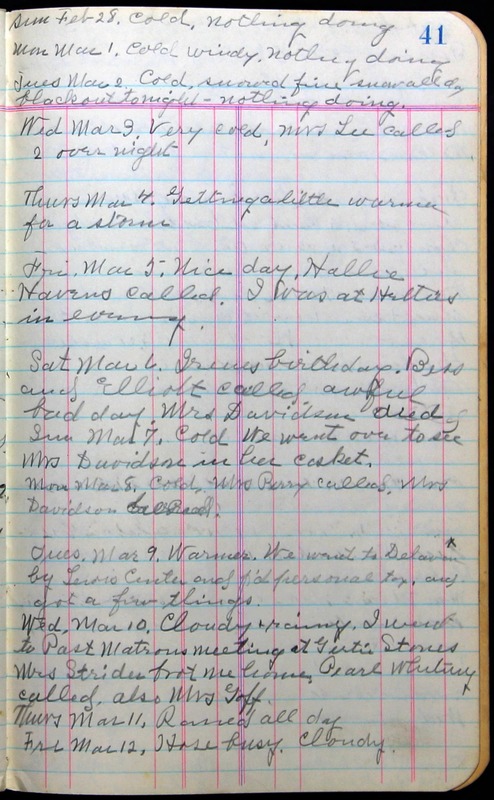 Sun Feb 28. Cold, nothing doing
41
Mon Mar 1. Cold windy, nothing doing
Tues Mar 2. Cold, snowed fine snow all day
blackout tonight - nothing doing.
Wed Mar 3, Very cold, Mrs Lee called
2 over night
Thurs Mar 4. Getting a little warmer
for a storm
Fri. Mar 5. Nice day, Hallie
Havens called. I was at
in evening.
Sat Mar 6. Irenes birthday. Bess
and Elliott called awful
bad day. Mrs Davidson died
Sun Mar 7. Cold We went over to see
Mrs Davidson in her casket.
Mon Mar 8. Cold, Mrs Perry called, Mrs
Davidson
Tues, Mar 9. Warmer. We went to Delavan
by Center and p'd personal tax, and
got a few things.
Wed, Mar 10, Cloudy & rainy. I went
to Past Matrons meeting at Stones
Mrs Strider brot me home, Pearl Whitney
called, also Mrs Goff.
Thurs Mar 11, Rained all day
Fri Mar 12, busy. Cloudy.